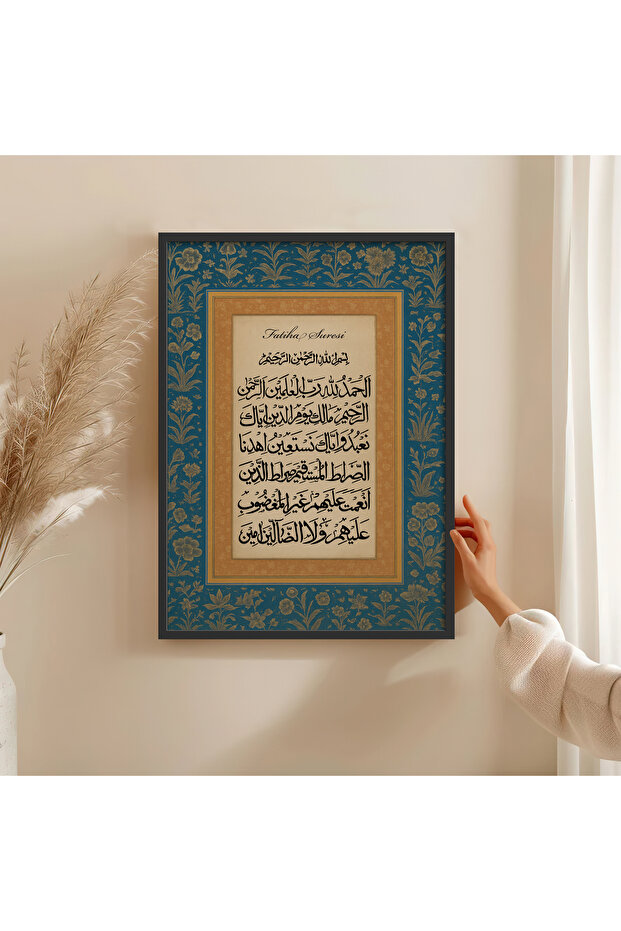 Fatiha Suresi
بسم الله الرحمن الرحيم
الحمد لله رب العلمين الرحمن
الرحيم مالك يوم الدين اياك
نعبد واياك نستعين اهدنا
الصراط المستقيم صراط الذين
أنعمت عليهم غير المغضوب
عليهم ولا الضالين امين